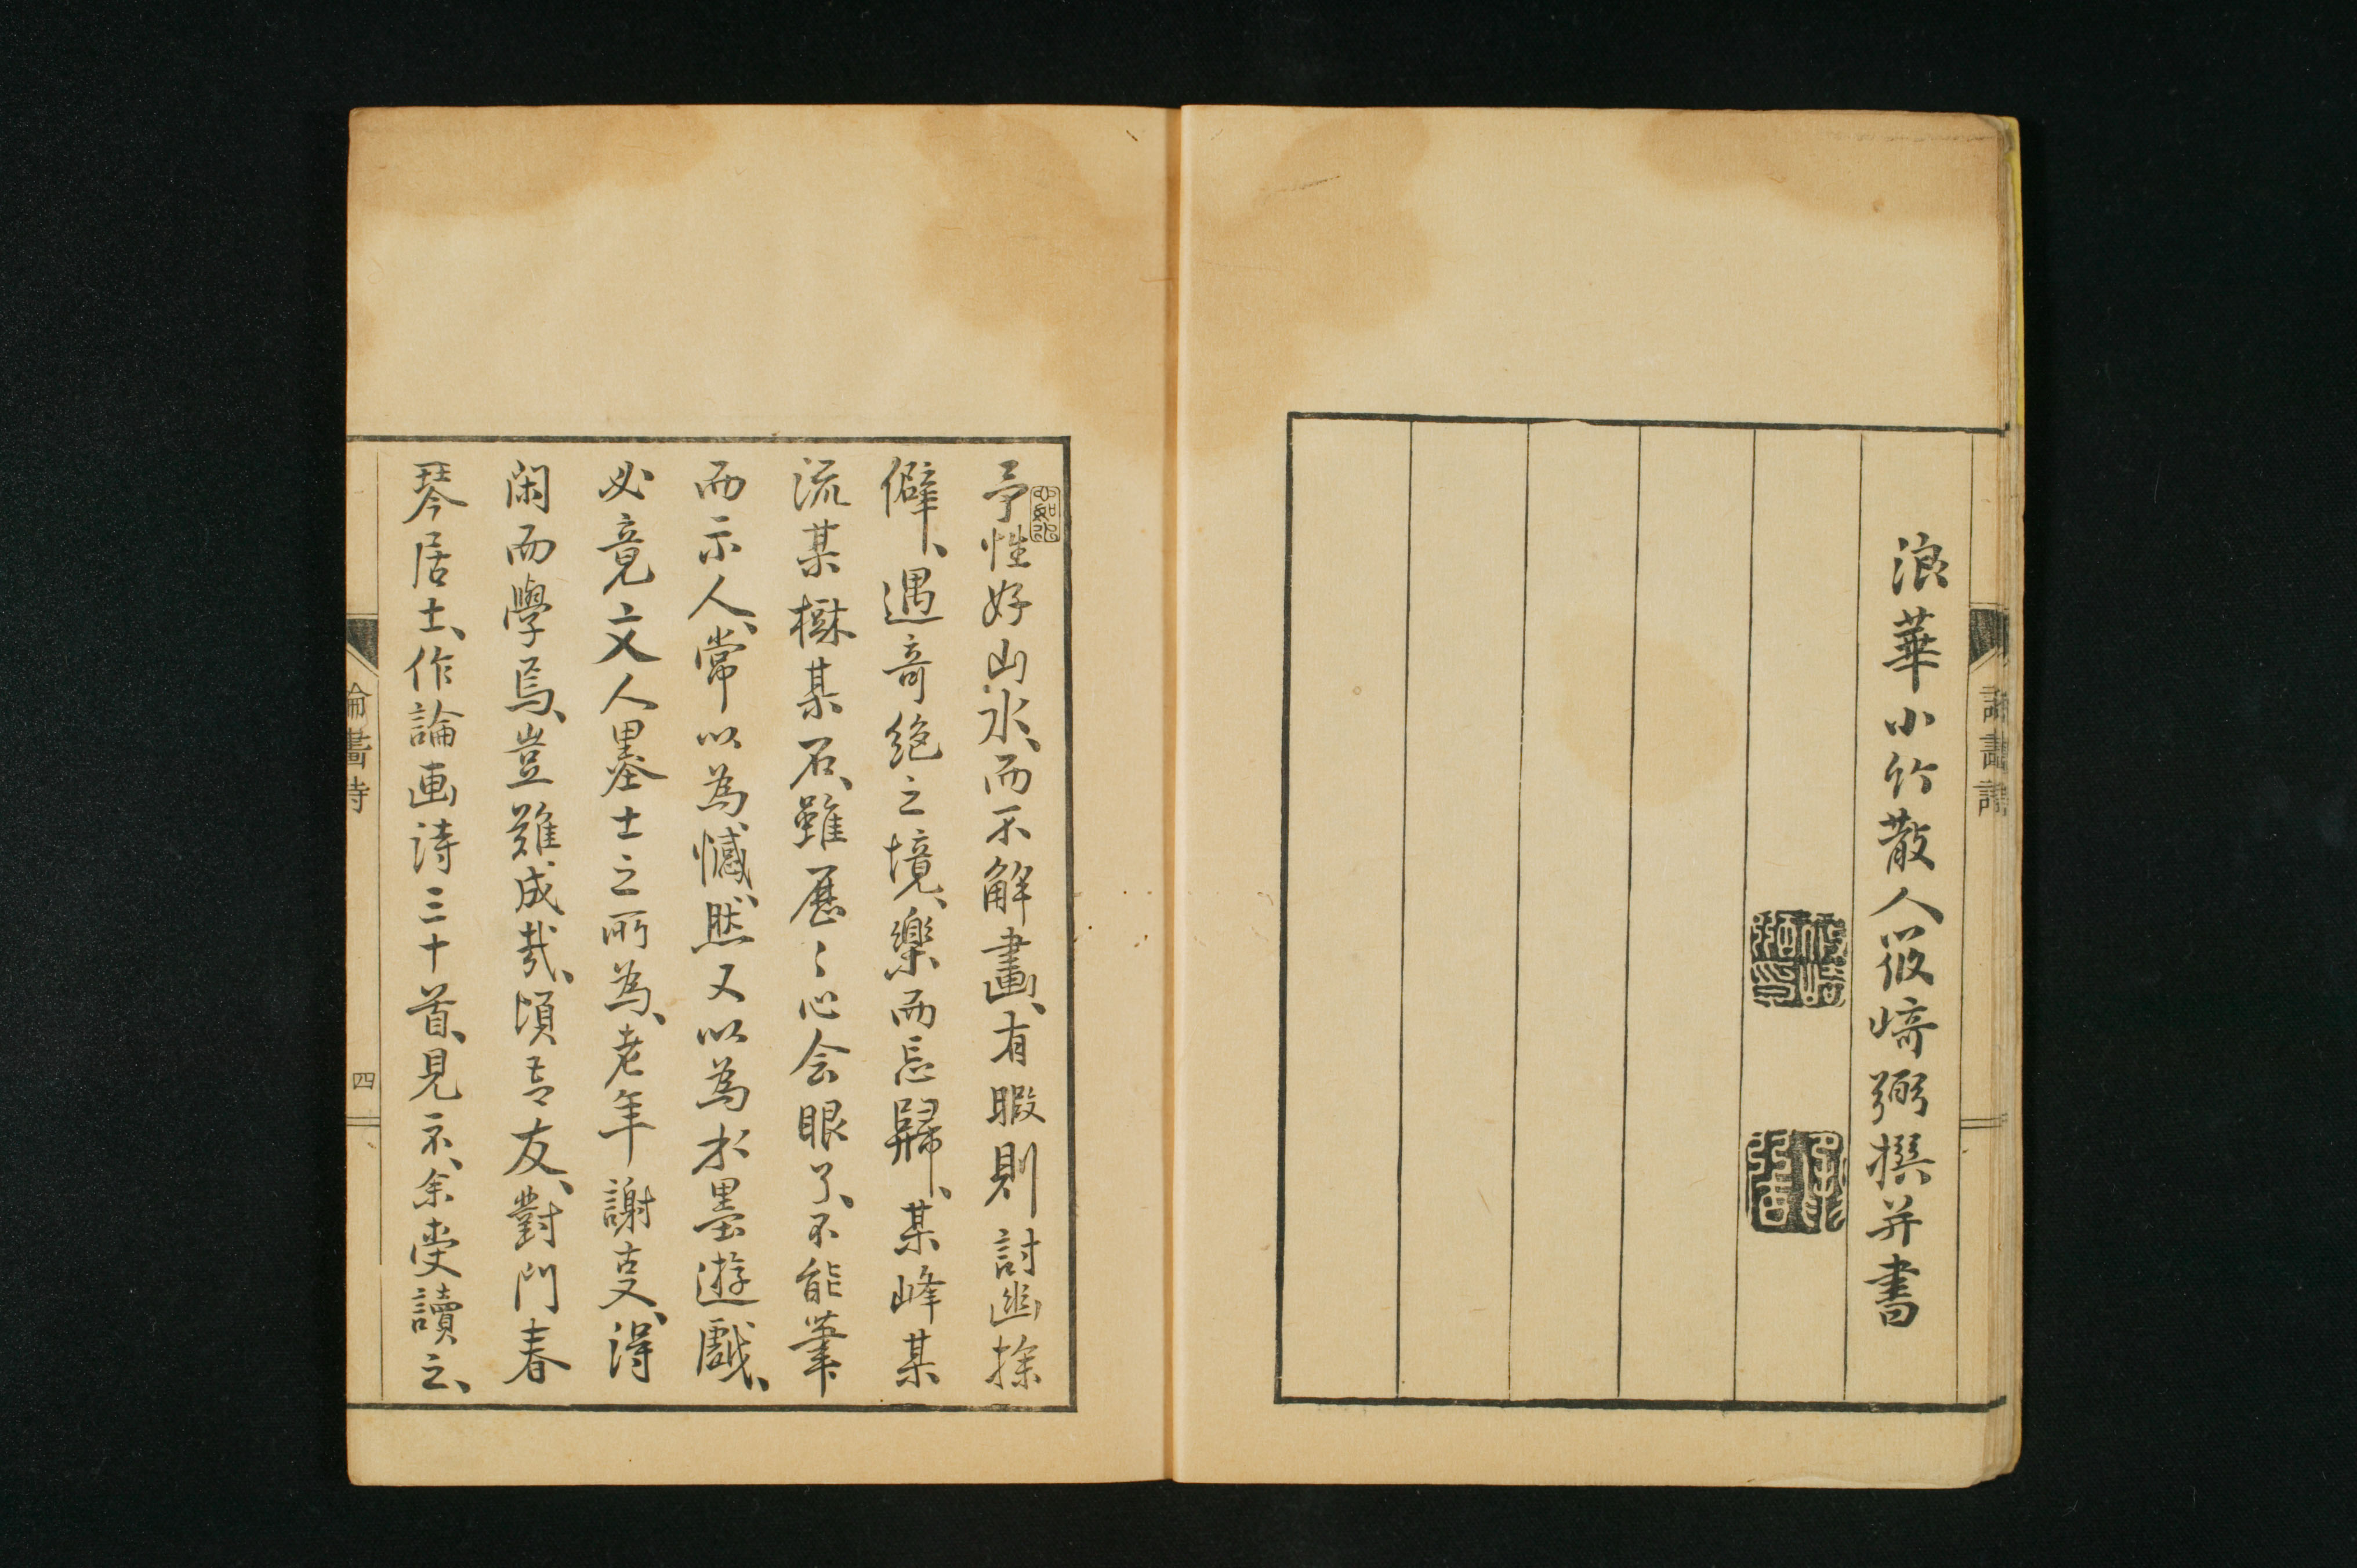 浪華小竹散人筱崎弼撰并書
予性好山水、而不解畫、有暇則討幽探
僻、遇奇絶之境、樂而忘歸、某峰某
流某樹某石、雖歷〻心会眼了、不能筆
而示人、常以為憾、然又以為水墨遊戲、
必竟文人墨士之所為、老年謝支、得
閑而學焉、豈難成哉、頃吾友、對門春
琴居士、作論画詩三十首、見示、余受讀之、
論畫詩
四